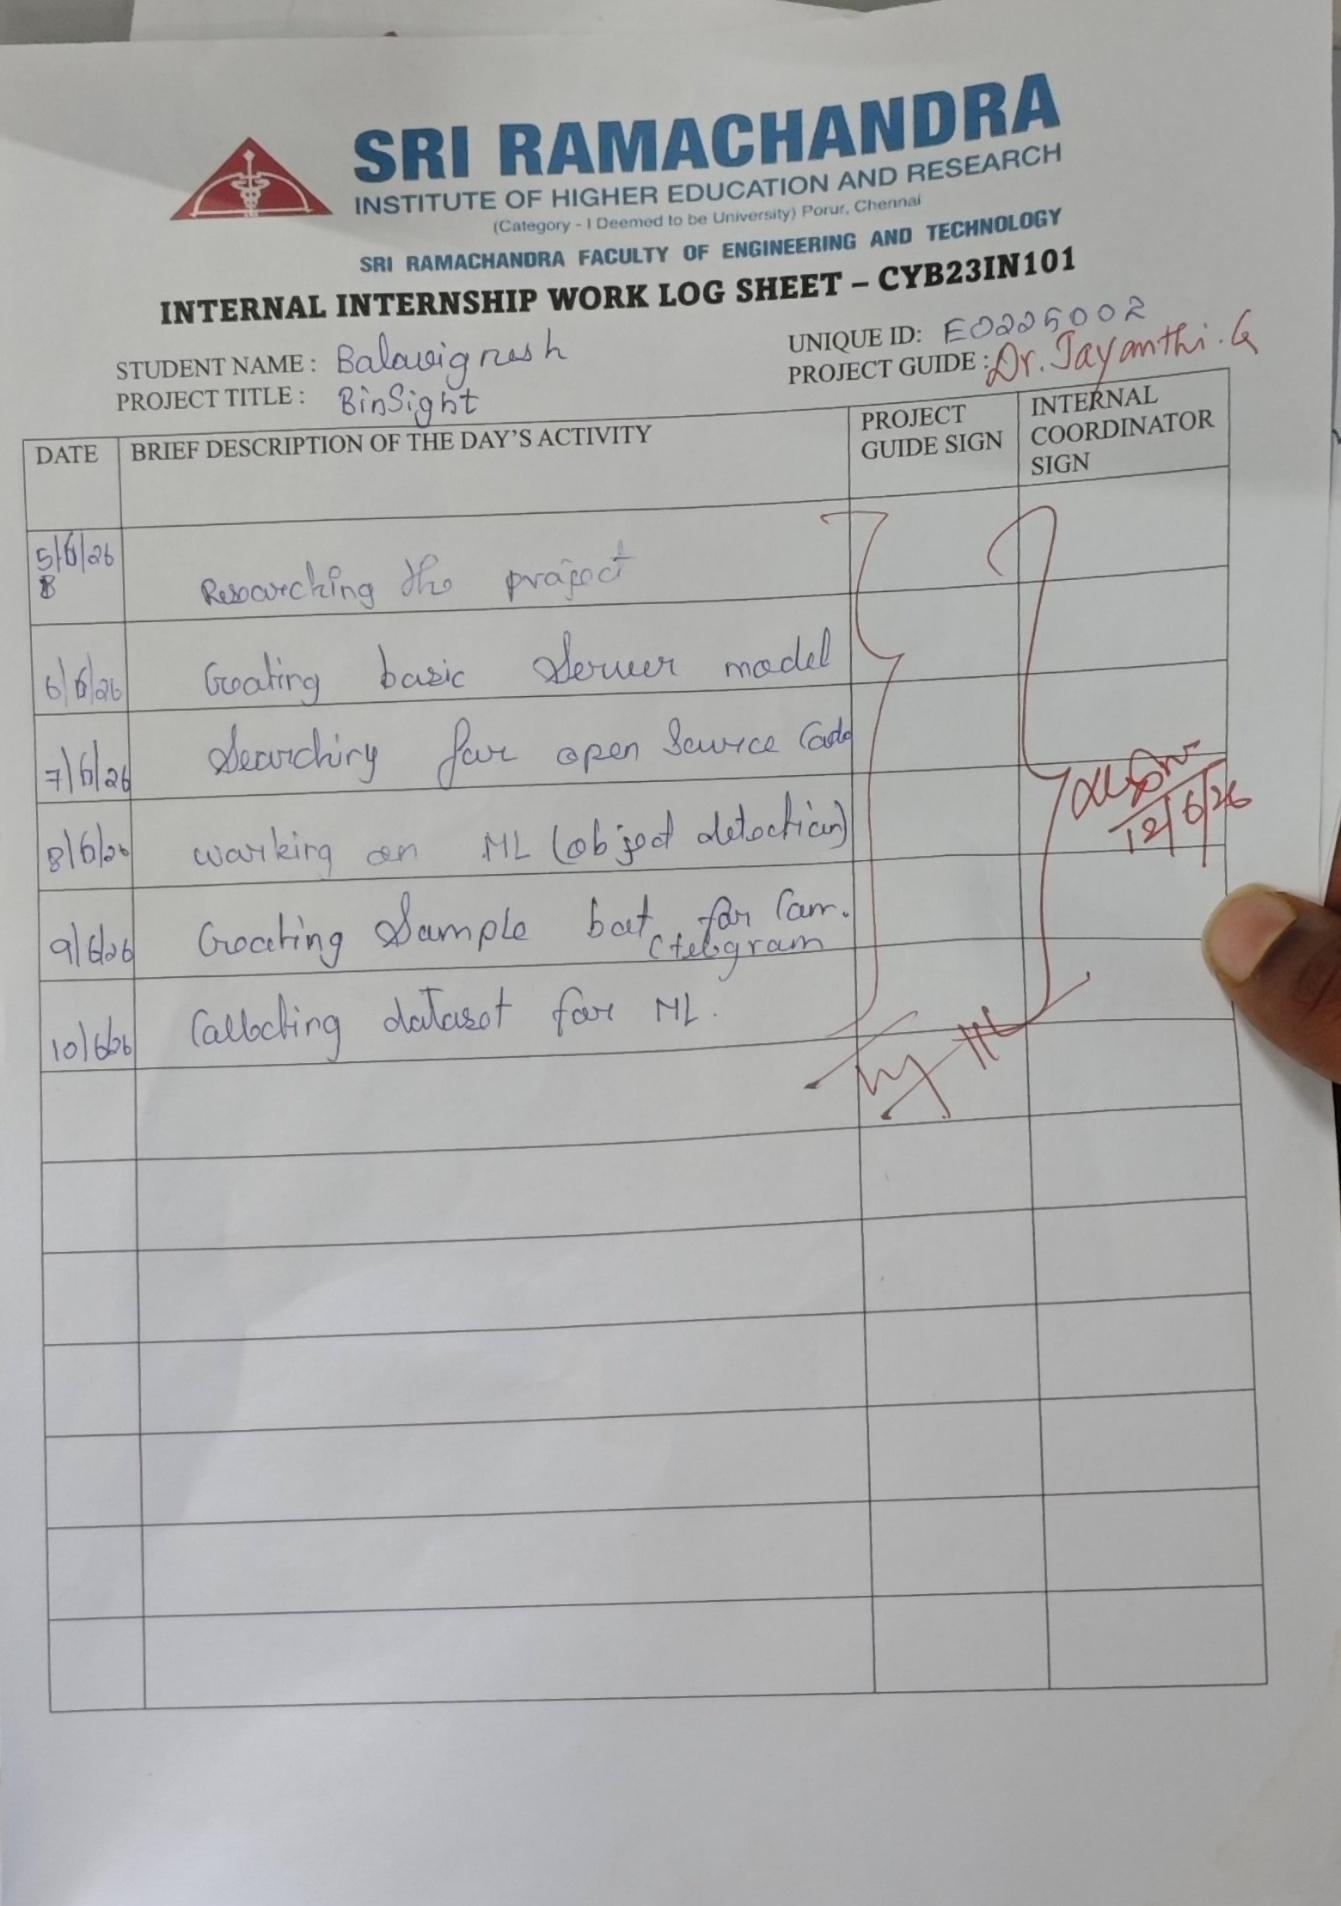 SRI RAMACHANDRA
INSTITUTE OF HIGHER EDUCATION AND RESEARCH
(Category - I Deemed to be University) Porur, Chennai
SRI RAMACHANDRA FACULTY OF ENGINEERING AND TECHNOLOGY
INTERNAL INTERNSHIP WORK LOG SHEET – CYB23IN101
STUDENT NAME : Balavignesh
UNIQUE ID: E0225002
PROJECT TITLE : BinSight
PROJECT GUIDE : Dr. Jayanthi. G
DATE
BRIEF DESCRIPTION OF THE DAY'S ACTIVITY
PROJECT
GUIDE SIGN
INTERNAL
COORDINATOR
SIGN
5/6/26
Researching the project
6/6/26 Creating basic Server model
7/6/26 Searching for open Source Code
8/6/26 working on ML (object detection)
9/6/26 Creating Sample bot for Cam.
(telegram
10/6/26 Collecting dataset for ML.
12/6/26